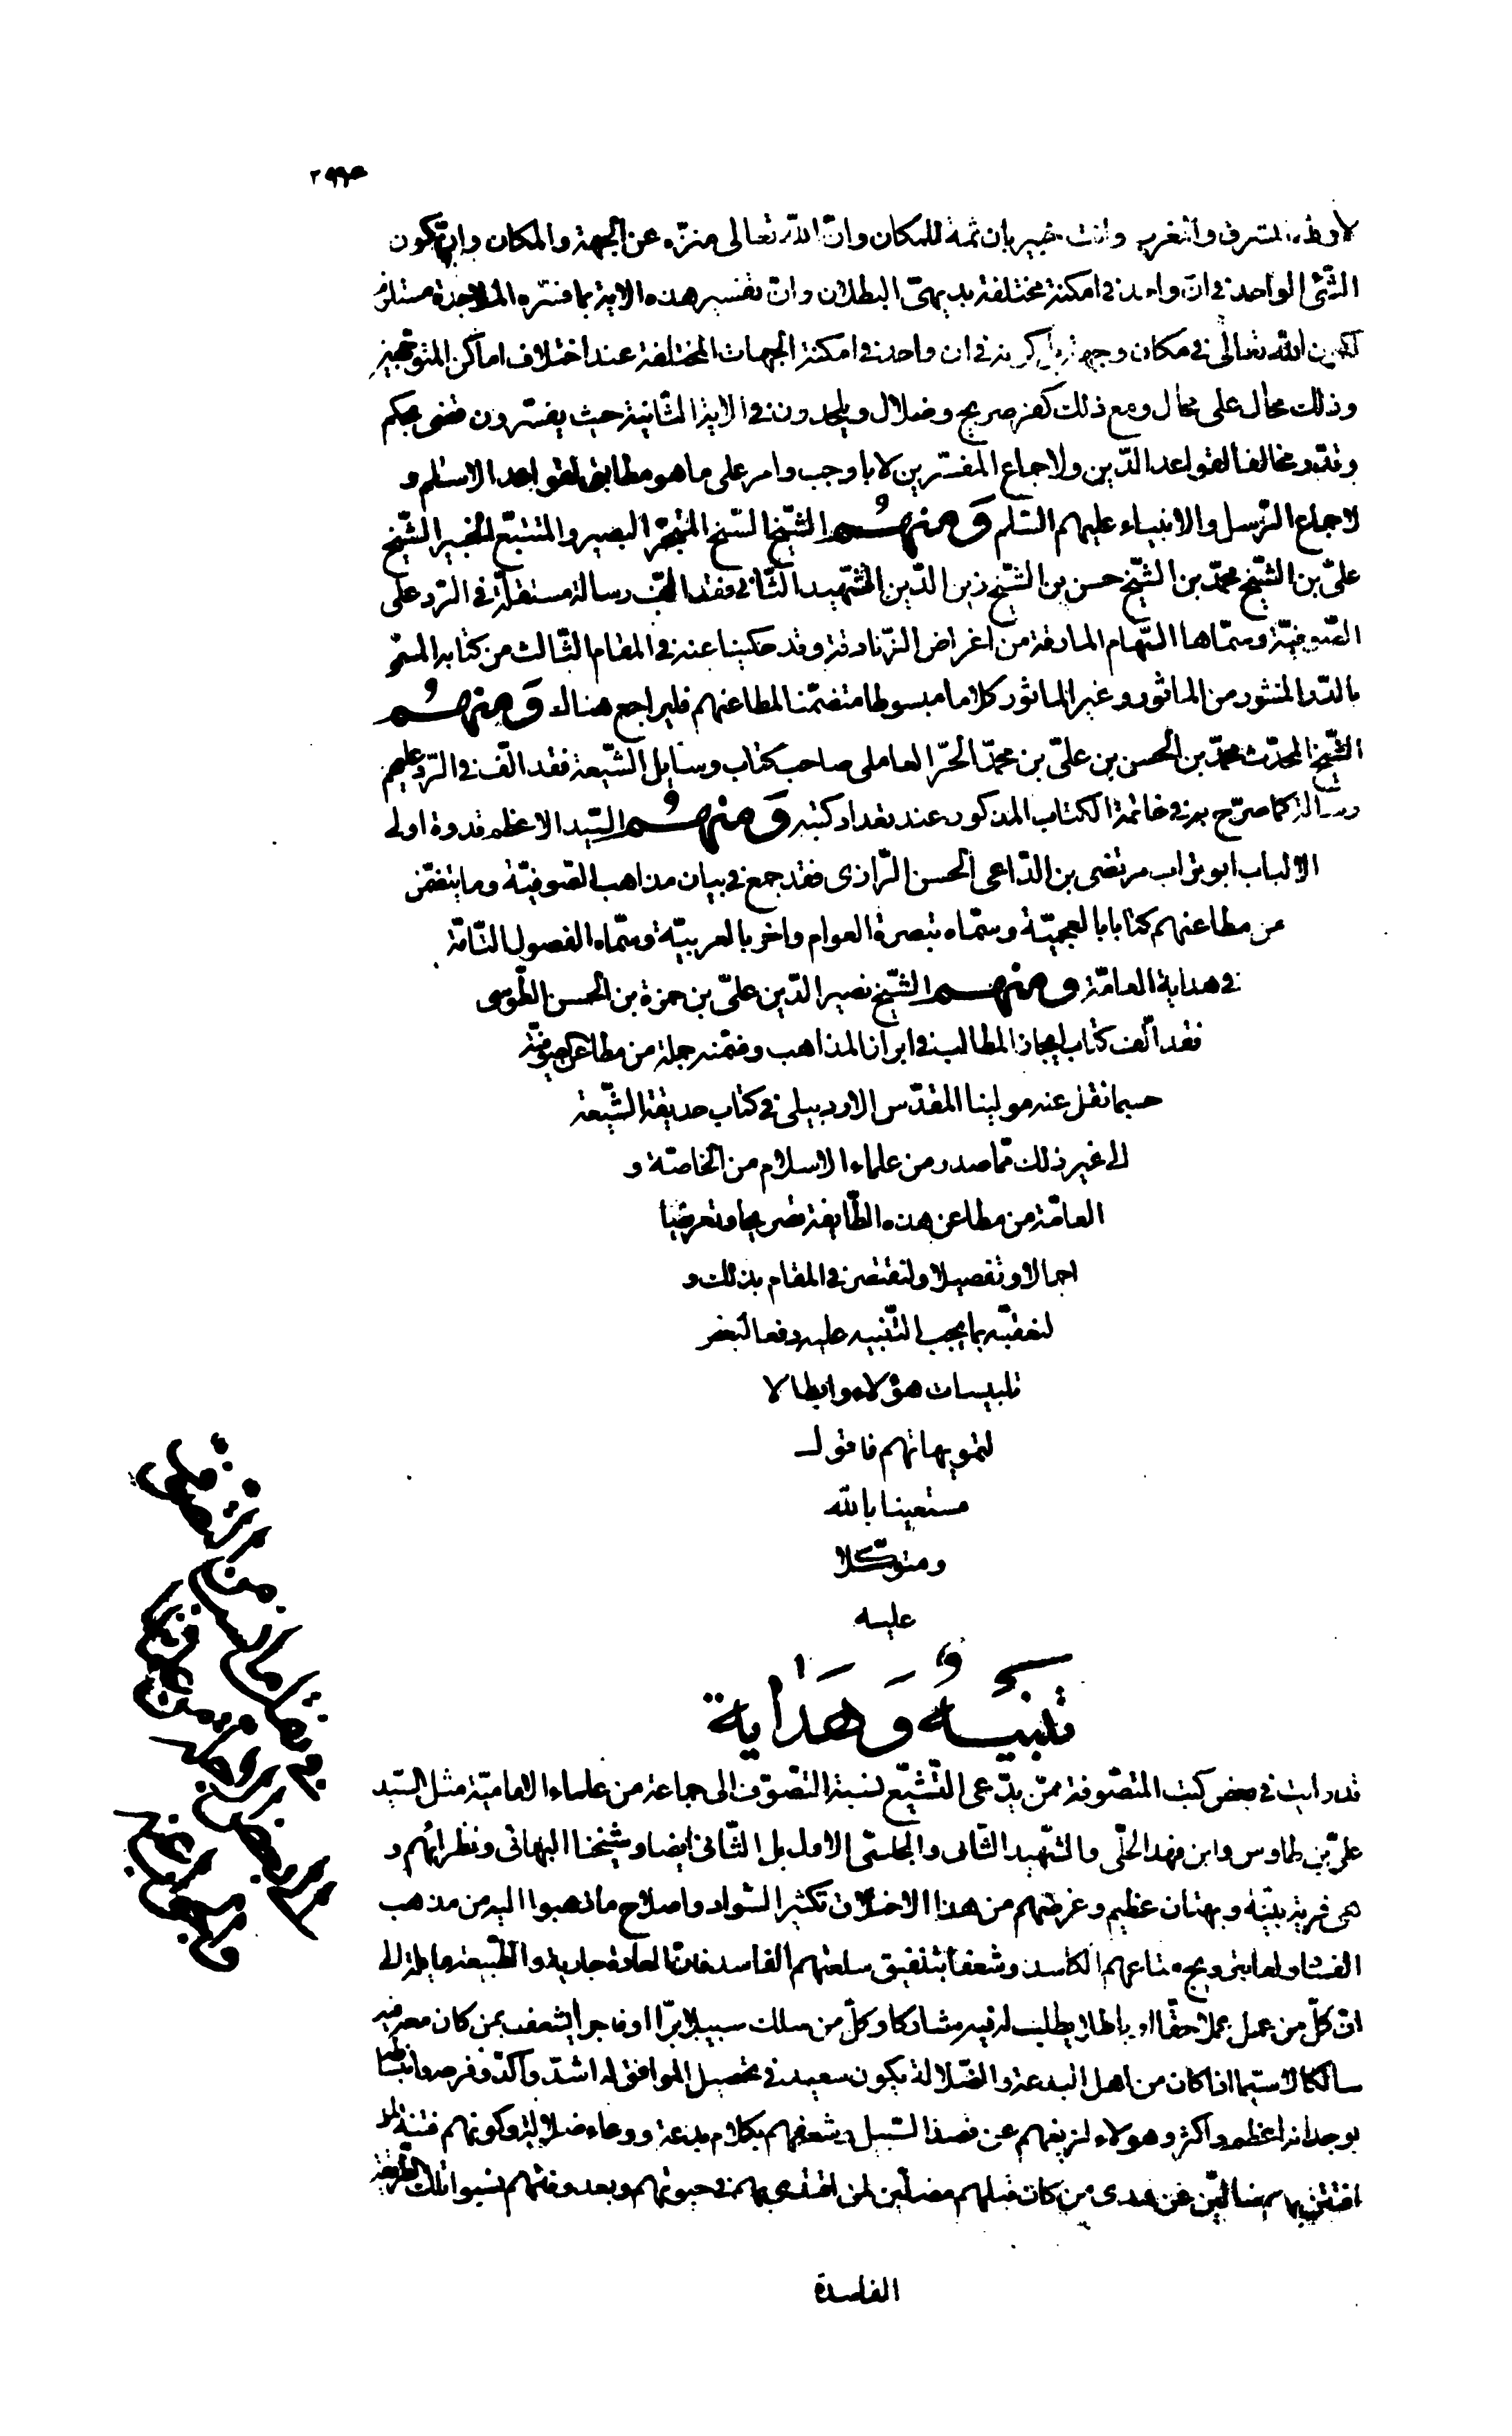 وانت خبير بان ثمة للمكان وانّ اللّه تعالى منزّه عن الجهة والمكان وان كون
الشّئ الواحد فى ان واحد فى امكنة مختلفة بديهىّ البطلان وانّ تفسير هذه الاية بما فسّره الملاحدة مستلزم
لكون اللّه تعالى فى مكان وجهة فى ان واحد فى امكنة الجهات المختلفة عند اختلاف اماكن المتوجهين
وذلك محال على محال ومع ذلك كفر صريح وضلال ويلحدون فى الاية الثّانية حيث يفسّرون قضى بحكم
وقدّر مخالفا لقواعد الدّين ولاجماع المفسّرين لا باوجب وامر على ما هو مطابق لقواعد الاسلام و
لاجماع الرّسل والانبياء عليهم السّلم وَمنهُم الشّيخ المتبحّر البصير والمتتبّع الخبير الشّيخ
علىّ بن الشّيخ محمّد بن الشّيخ حسن بن الشّيخ زين الدّين الشّهيد الثّانى فقد الّف رسالة مستقلّة فى الرّد على
الصّوفيّة وسمّاها السّهام المارقة من اغراض الزّنادقة وقد حكينا عنه فى المقام الثّالث من كتابه المسمّى
بالدّر المنثور من الماثور وغير الماثور كلاما مبسوطا متضمّنا لمطاعنهم فليراجع هناك وَمنهُم
الشّيخ المحدّث محمّد بن الحسن بن علىّ بن محمّد الحرّ العاملى صاحب كتاب وسايل الشّيعة فقد الّف فى الرّد عليهم
رسالة كما صرّح به فى خاتمة الكتاب المذكور عند تعداد كتبه وَمنهُم السّيد الاعظم قدوة اولى
الالباب ابو تراب مرتضى بن الدّاعى الحسن الرّازى فقد جمع فى بيان مذاهب الصّوفيّة وما يتضمّن
من مطاعنهم كتابا بالعجميّة وسمّاه تبصرة العوام واخر بالعربيّة وسمّاه الفصول التّامّة
فى هداية العامّة ومنهم الشّيخ نصير الدّين علىّ بن حمزة بن الحسن الطّوسى
فقد الّف كتاب ايجاز المطالب فى ابراز المذاهب وضمّنه جملة من مطاعن الصوفيّة
حسبما نقل عنه مولينا المقدّس الاردبيلى فى كتاب حديقة الشّيعة
الى غير ذلك ممّا صدر من علماء الاسلام من الخاصّة و
العامّة من مطاعن هذه الطّايفة تصريحا وتعريضا
اجمالا وتفصيلا ولنقتصر فى المقام بذلك و
لنعقّبه بما يجب التّنبيه عليه دفعا لبعض
تلبيسات هؤلاء وابطالا
لتمويهاتهم فاقول
مستعينا باللّه
ومتوكّلا
عليه
تنبيهٌ وَهَداية
قد رايت فى بعض كتب المتصّوفة ممّن يدّعى التّشيّع نسبة التّصوّف الى جماعة من علماء الاماميّة مثل السّيد
علىّ بن طاوس وابن فهد الحلّى والشّهيد الثّانى والمجلسّى الاول بل الثّانى ايضا وشيخنا البهائى ونظرائهم و
هى فرية بيّنة وبهتان عظيم وغرضهم من هذا الاختلاق تكثير السّواد واصلاح ما ذهبوا اليه من مذهب
الفساد لما بترويج متاعهم الكاسد وشعفا بتنفيق سلعتهم الفاسد فانّ العادة جارية والطّبيعة مايلة الى
انّ كلّ من عمل عملا حقّا او باطلا يطلب له فيه مشاركا وكلّ من سلك سبيلا برّا او فاجرا يشعف بمن كان معه فيه
سالكا لا سيّما اذا كان من اهل البدعة والضّلالة يكون سعيه فى تحصيل الموافق له اشدّ وآكد وفرحه وانبساطه
بوجدانه اعظم واكثر وهولاء لزيغهم عن قصد السّبيل وشعفهم بكلام بدعة ودعاء ضلالة وكونهم فتنة لمن
افتتن بهم ضالّين عن هدى من كان قبلهم مضلّين لمن اقتدى بهم فى حيوتهم وبعد وفاتهم نسبوا تلك الطّريقة
الفاسدة